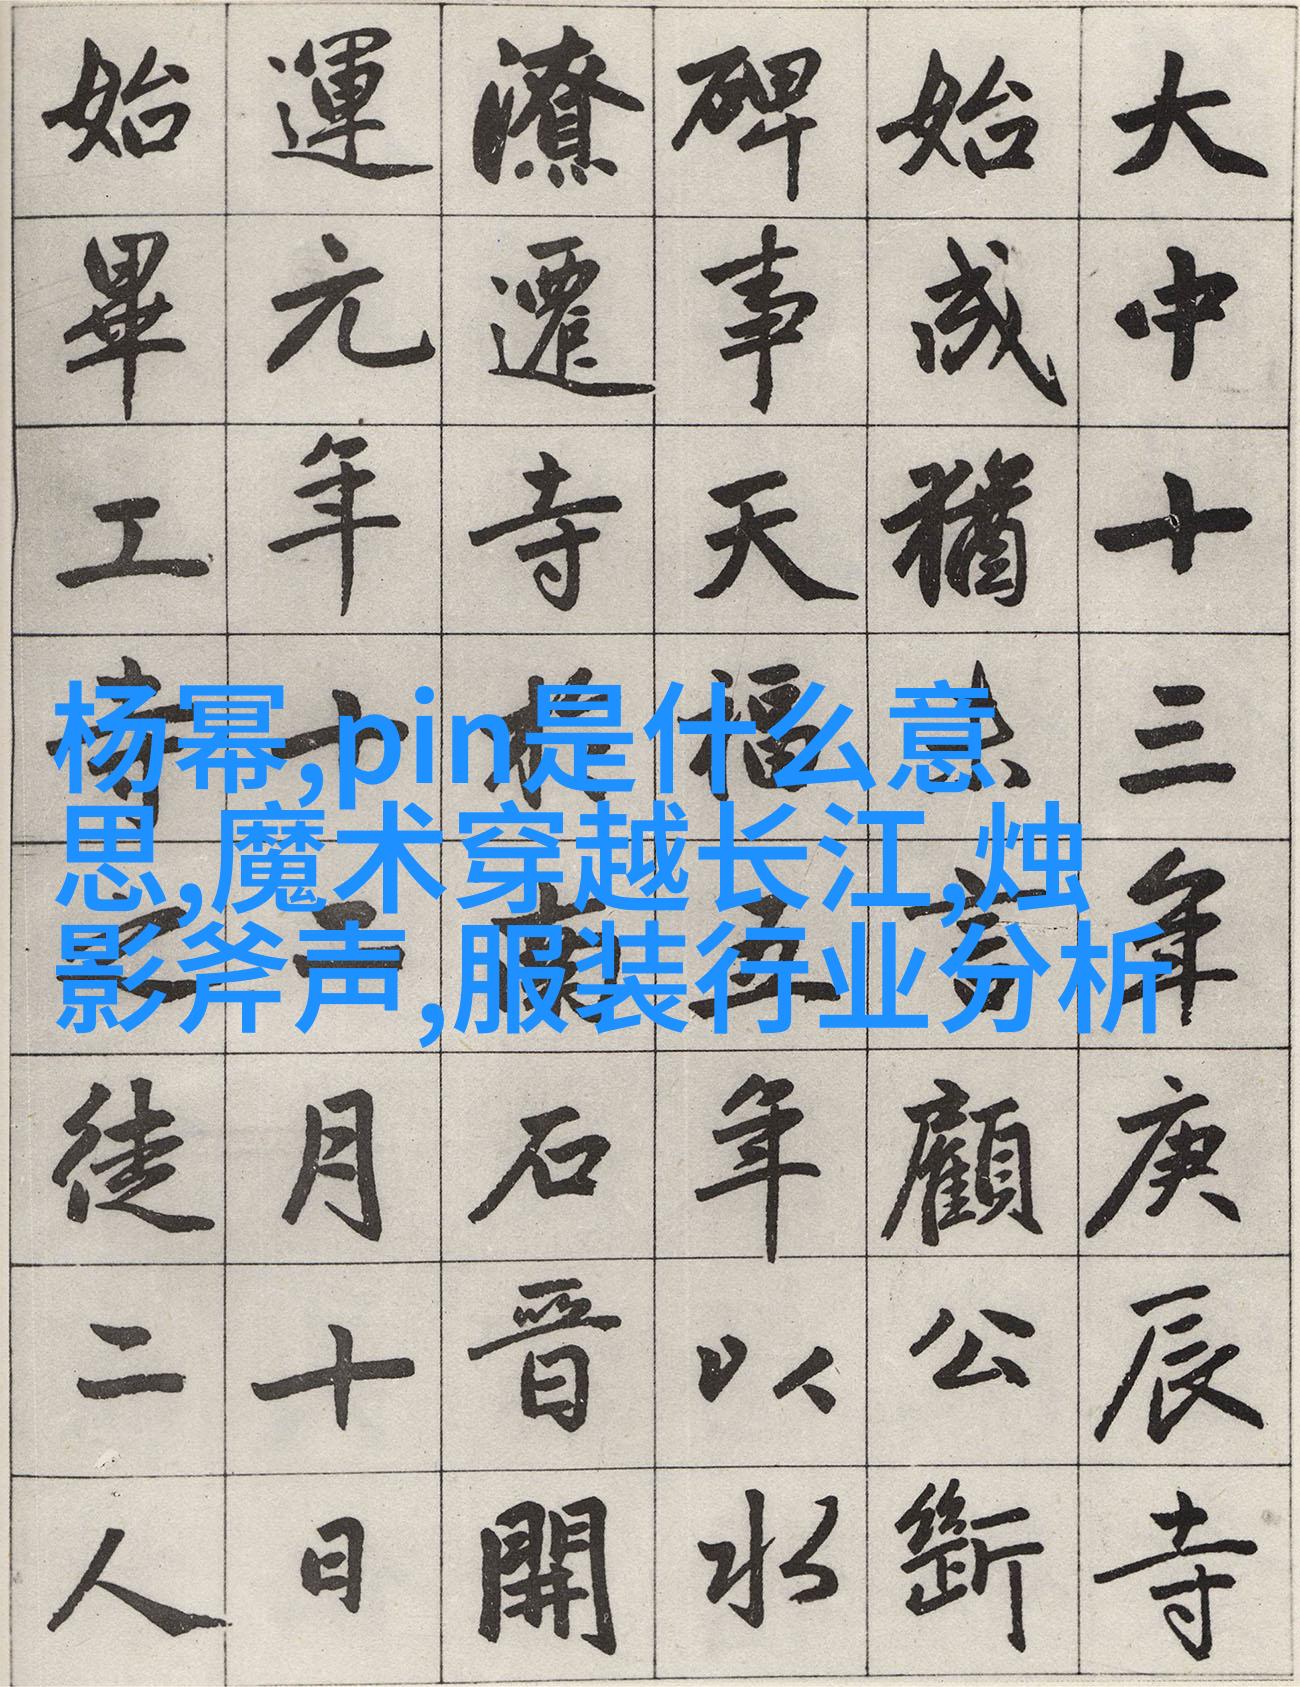 大中十三年庚辰寺
始成猶言顧公斷
碑事天福五年以水
潦遷寺於南石晉開
運元年十二月十日
始畢工徒二人
杨幂,pin是什么意
思,魔术穿越长江,烛
影斧声,服装行业分析